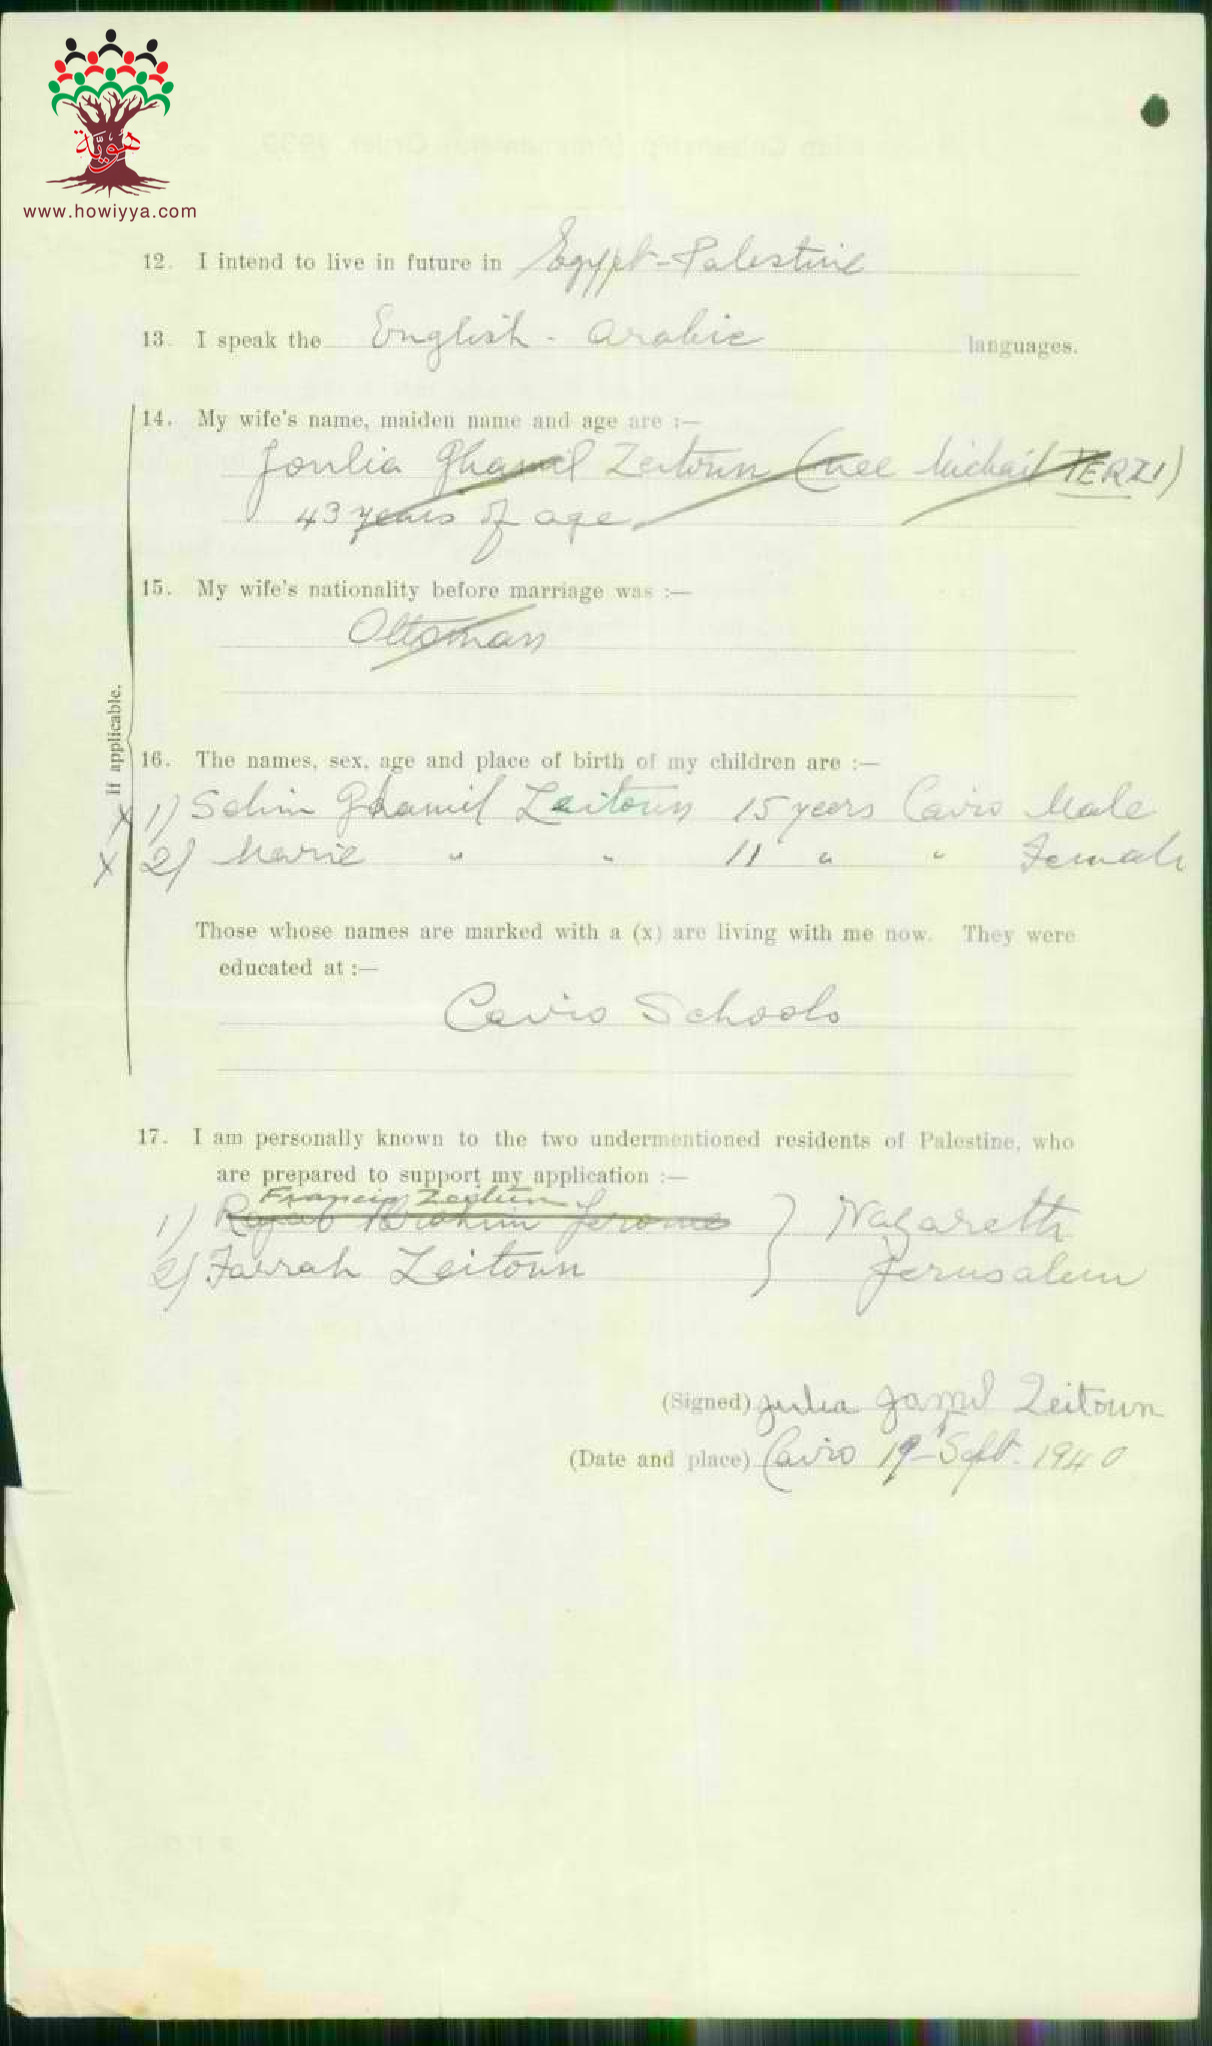 هوية
www.howiyya.com
12. I intend to live in future in Egypt-Palestine
13. I speak the English - Arabic languages.
14. My wife's name, maiden name and age are :—
Joulia Ghamil Zeitoun (nee Michail TERZI)
43 years of age
15. My wife's nationality before marriage was :—
Ottoman
If applicable.
16. The names, sex, age and place of birth of my children are :—
x 1) Selim Ghamil Zeitoun 15 years Cairo Male
x 2) Marie " " 11 " " Female
Those whose names are marked with a (x) are living with me now. They were
educated at :—
Cairo Schools
17. I am personally known to the two undermentioned residents of Palestine, who
are prepared to support my application :—
Francis Zeitun
1) Ibrahim Jerome } Nazareth
2) Farrah Zeitoun } Jerusalem
(Signed) Julia Jamil Zeitoun
(Date and place) Cairo 19 Sept. 1940